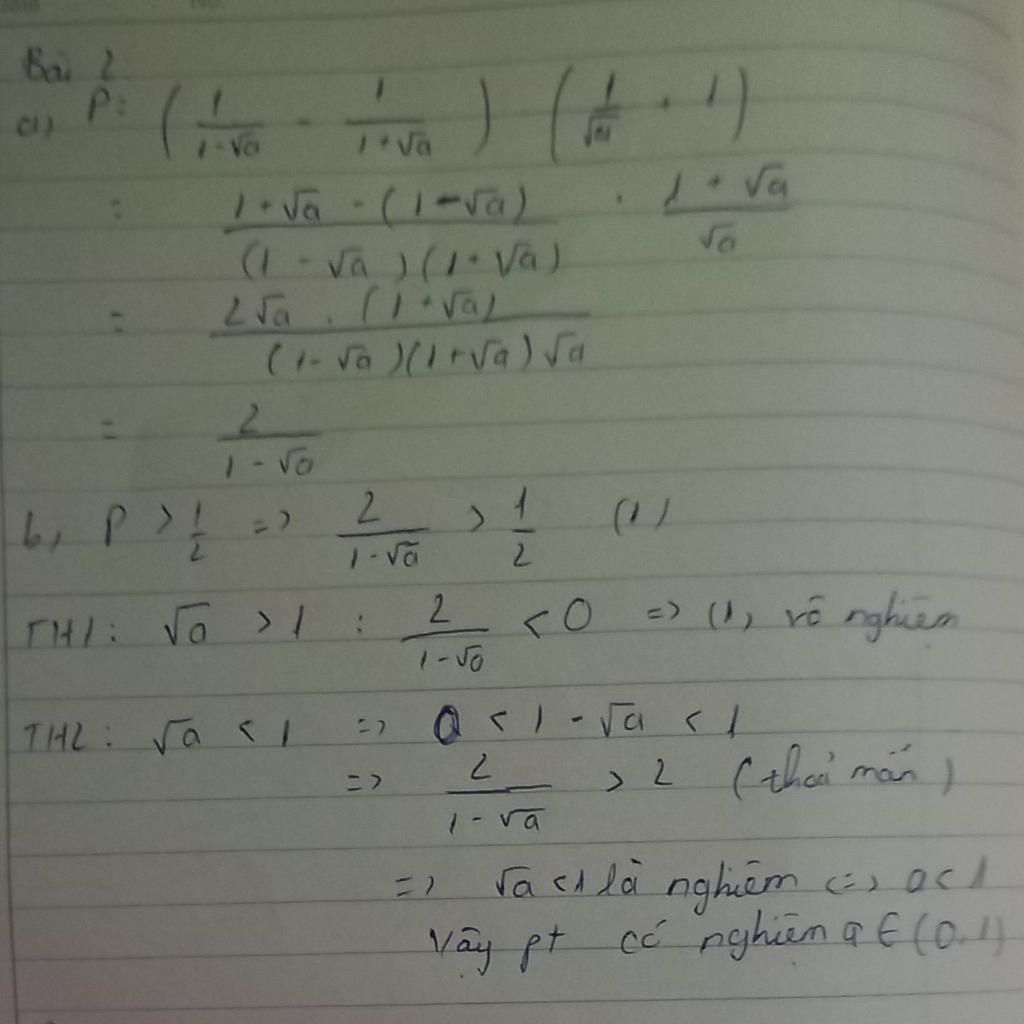 Bài 2
a) P = (1/(1-√a) - 1/(1+√a)) · (1/√a + 1)
= (1+√a - (1-√a))/((1-√a)(1+√a)) · (1+√a)/√a
= (2√a . (1+√a))/((1-√a)(1+√a)√a)
= 2/(1-√a)
b, P > 1/2 => 2/(1-√a) > 1/2 (1)
TH1: √a > 1 : 2/(1-√a) < 0 => (1) vô nghiệm
TH2: √a < 1 => 0 < 1 - √a < 1
=> 2/(1-√a) > 2 (thoả mãn)
=> √a < 1 là nghiệm <=> a < 1
Vậy pt có nghiệm a ∈ (0,1)